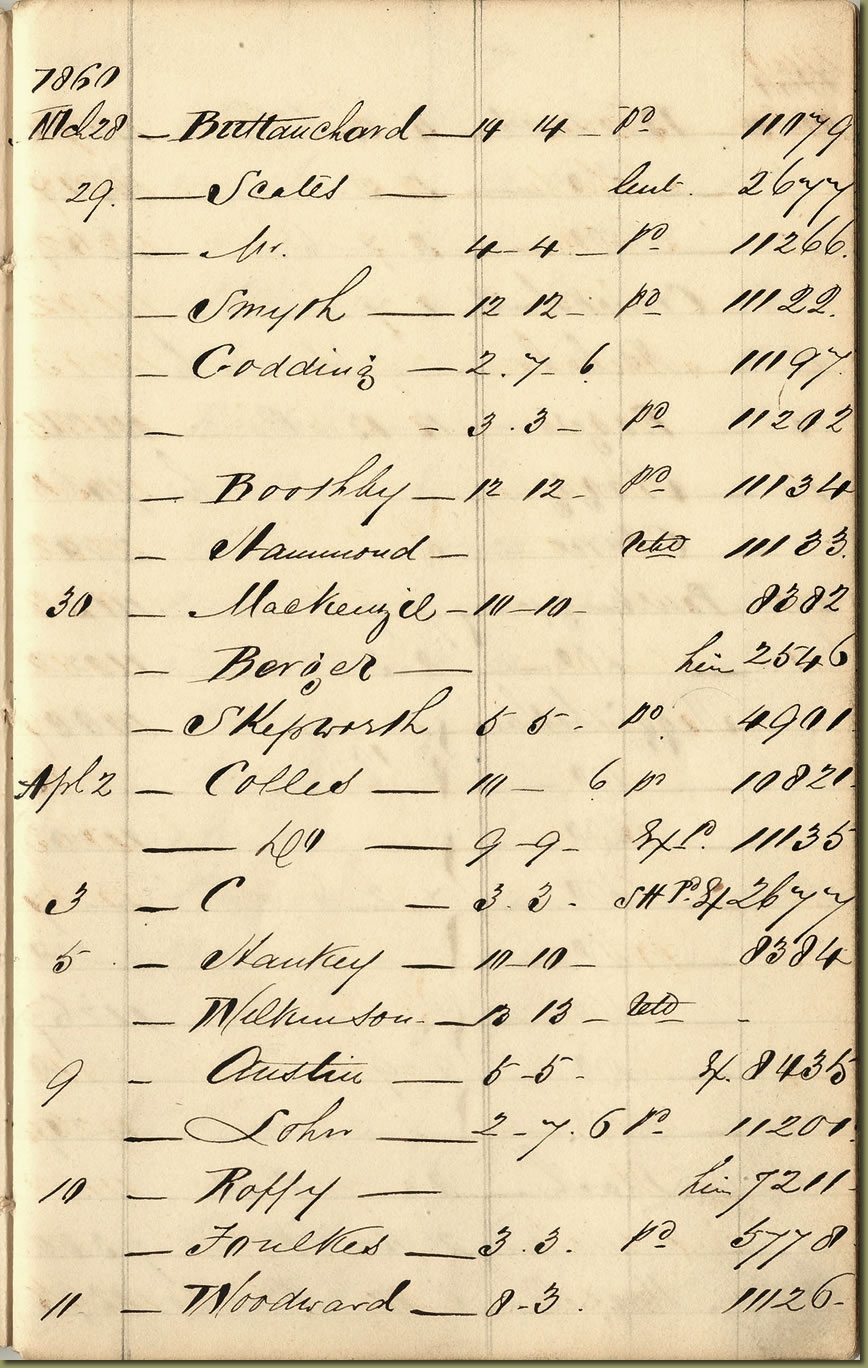 1860
Mch 28 — Buttanchard — 14 14 — pd 11079
29. — Scates — lent. 2677
— Mr. 4 - 4 — pd 11266.
— Smyth — 12 12 - pd 11122.
— Godding — 2. 7 - 6 11197
— - 3. 3 — pd 11202
— Boothby — 12 12 - pd 11134
— Hammond — Retd 11133.
30 — Mackenzie - 10 - 10 - 8382
— Berger — him 2546
— Skepworth 5 5 - pd 4901
Apl 2 — Colles — 10 — 6 pd 10821.
— Do — 9 - 9 - Ex Pd. 11135
3 — C — 3. 3 - SH Pd. Ex 2677
5 — Hankey — 10 - 10 — 8384
— Wilkinson - — 13 13 — Retd -
9 - Austin — 5 - 5 - Ex. 8435
— John — 2 - 7. 6 Pd 11201.
10 - Roffy — him 7211
— Foulkes — 3. 3. pd 5778
11 — Woodward — 8 - 3. 11126 -